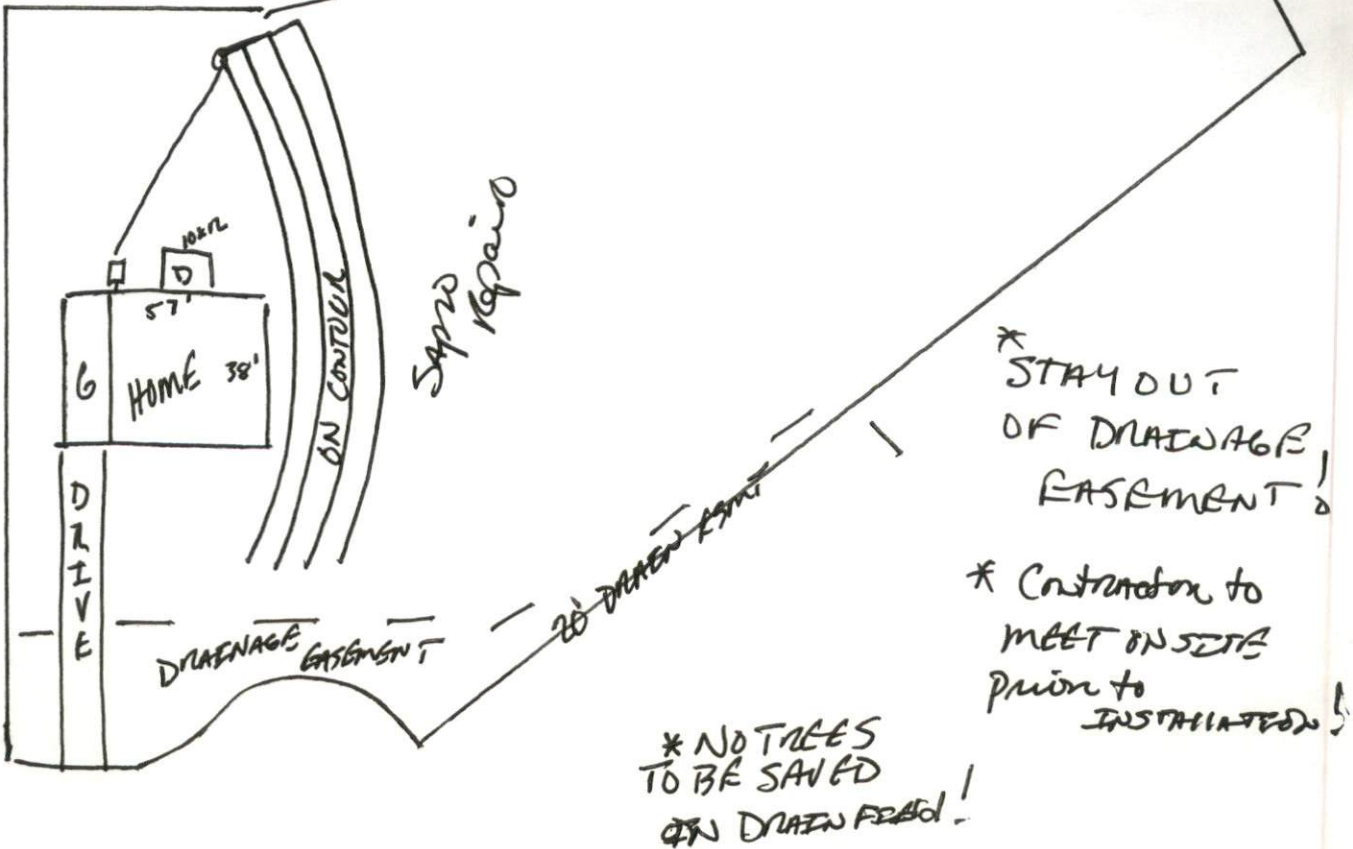 10x12
D
57'
G
HOME 38'
ON CONTOUR
Repair
DRIVE
DRAINAGE EASEMENT
20' DRAIN ESMT
* STAY OUT
OF DRAINAGE
EASEMENT!
* Contractor to
MEET ONSITE
prior to
INSTALLATION!
* NO TREES
TO BE SAVED
IN DRAINFIELD!